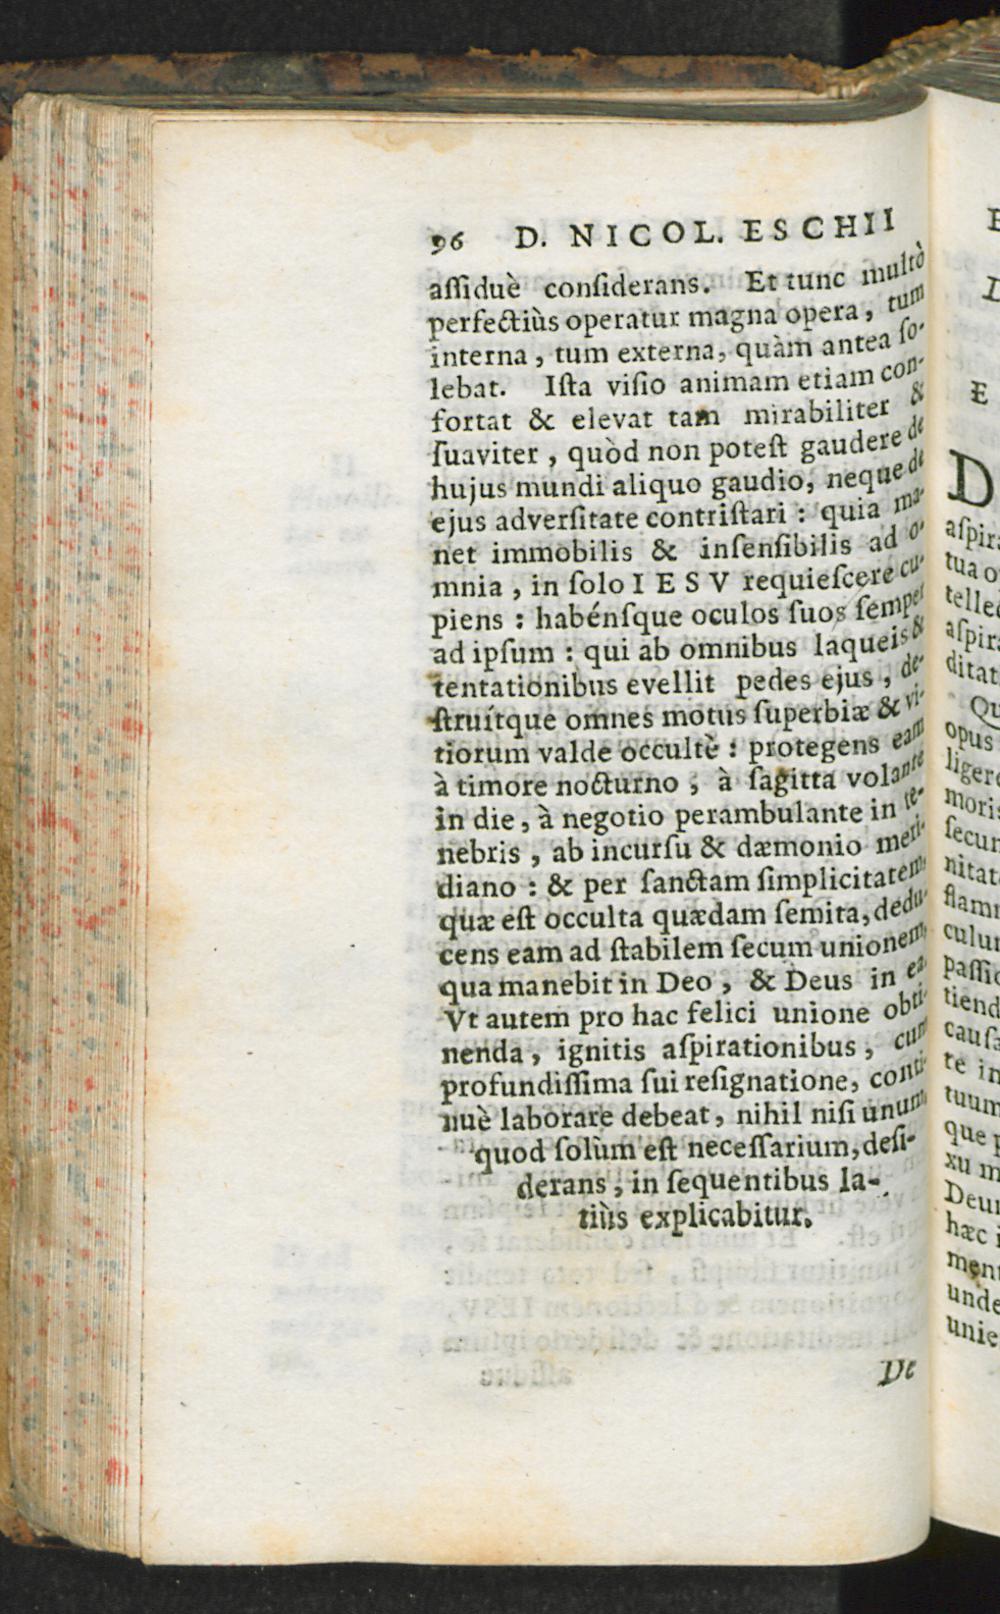 96 D. NICOL. ESCHII
aſſiduè conſiderans. Et tunc multò
perfectiùs operatur magna opera, tum
interna, tum externa, quàm antea ſo-
lebat. Iſta viſio animam etiam con-
fortat & elevat tam mirabiliter &
ſuaviter, quòd non poteſt gaudere de
hujus mundi aliquo gaudio, neque de
ejus adverſitate contriſtari : quia ma-
net immobilis & inſenſibilis ad o-
mnia, in ſolo IESV requieſcere cu-
piens : habénſque oculos ſuos ſemper
ad ipſum : qui ab omnibus laqueis &
tentationibus evellit pedes ejus, de-
ſtruítque omnes motus ſuperbiæ & vi-
tiorum valde occultè : protegens eam
à timore nocturno ; à ſagitta volante
in die, à negotio perambulante in te-
nebris, ab incurſu & dæmonio meri-
diano : & per ſanctam ſimplicitatem,
quæ eſt occulta quædam ſemita, dedu-
cens eam ad ſtabilem ſecum unionem,
qua manebit in Deo, & Deus in ea.
Vt autem pro hac felici unione obti-
nenda, ignitis aſpirationibus, cum
profundiſſima ſui reſignatione, conti-
nuè laborare debeat, nihil niſi unum,
quod ſolùm eſt neceſſarium, deſi-
derans, in ſequentibus la-
tiùs explicabitur.
De
E
E
D
aſpir
tua o
aſpir
ditat
Qu
opus
moris
ſecun
nitat
culum
paſſio
tiend
cauſa
te in
tuum
que p
xu m
Deum
hæc i
ment
unde
unie